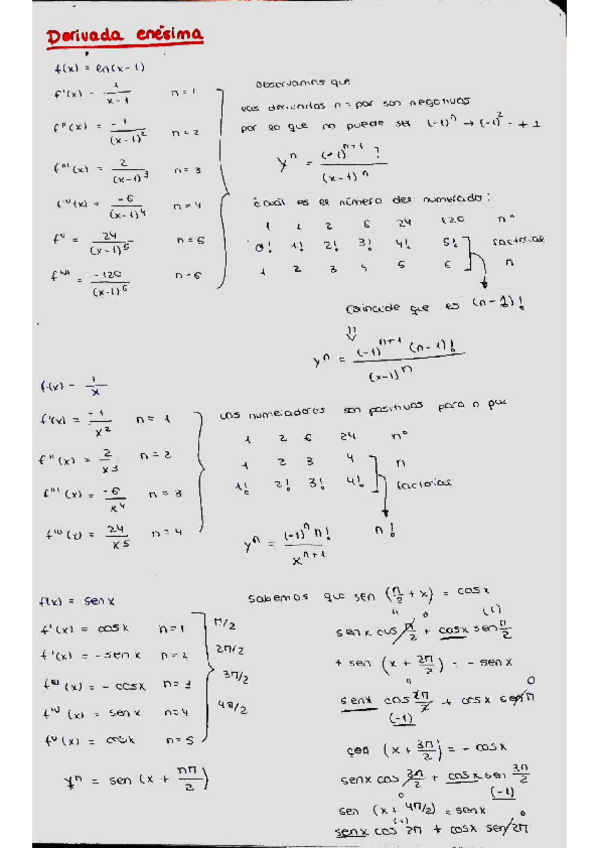 Derivada enésima
f(x) = ln(x-1)
f'(x) = 1/(x-1) n=1
f''(x) = -1/(x-1)² n=2
f'''(x) = 2/(x-1)³ n=3
f^IV(x) = -6/(x-1)⁴ n=4
f^V = 24/(x-1)⁵ n=5
f^VI = -120/(x-1)⁶ n=6
Observamos que
las derivadas n=par son negativas
por lo que no puede ser (-1)ⁿ → (-1)² = +1
yⁿ = (-1)ⁿ⁺¹ ? / (x-1)ⁿ
¿cuál es el número del numerador:
1 1 2 6 24 120 nº
0! 1! 2! 3! 4! 5! factorial
1 2 3 4 5 6 n
Coincide que es (n-1)!
⇓
yⁿ = (-1)ⁿ⁺¹ (n-1)! / (x-1)ⁿ
f(x) = 1/x
f'(x) = -1/x² n=1
f''(x) = 2/x3 n=2
f'''(x) = -6/x⁴ n=3
f^IV(x) = 24/x5 n=4
Los numeradores son positivos para n par
1 2 6 24 nº
1 2 3 4 n
1! 2! 3! 4! factorial
n!
yⁿ = (-1)ⁿ n! / xⁿ⁺¹
f(x) = senx
f'(x) = cosx n=1 π/2
f''(x) = -senx n=2 2π/2
f'''(x) = -cosx n=3 3π/2
f^IV(x) = senx n=4 4π/2
f^V(x) = cosx n=5
yⁿ = sen (x + nπ/2)
Sabemos que sen (π/2 + x) = cosx
senx cos π/2 + cosx sen π/2 0 (1)
+ sen (x + 2π/2) = -senx
senx cos 2π/2 + cosx senπ 0
(-1)
sen (x + 3π/2) = -cosx
senx cos 3π/2 + cosx sen 3π/2
0 (-1)
sen (x + 4π/2) = senx 0
(+1)
senx cos 2π + cosx sen 2π